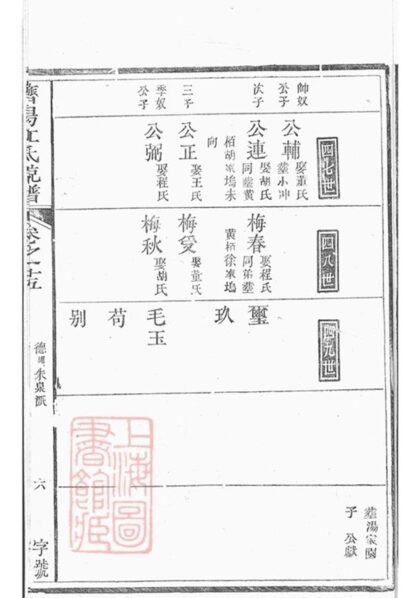 四七世
帥奴公子
公輔
娶董氏
葬小冲
次子
公連
娶胡氏
同葬黃
栢胡家塢未
向
三子
公正
娶王氏
季奴公子
公弼
娶程氏
四八世
梅春
娶程氏
同弟葬
黃栢徐家塢
梅受
娶董氏
梅秋
娶胡氏
四九世
璽
玖
毛玉
苟
别
葬湯家園
子公獻
濟陽江氏統譜
卷之十五
六
字號
上海圖
書館藏